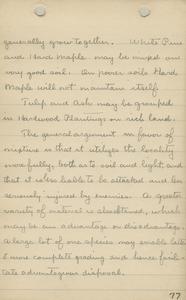 generally grow together. White Pine
and Hard Maple may be mixed on
very good soil. On poorer soils Hard
Maple will not maintain itself.
Tulip and Ash may be grouped
in Hardwood Plantings on rich land.
The general argument in favor of
mixture is that it utilizes the locality
more fully, both as to soil and light, and
that it is less liable to be attacked and
seriously injured by enemies. A greater
variety of material is also obtained, which
may be an advantage or disadvantage.
A large lot of one species may enable later
more complete grading and hence facil-
itate advantageous disposal.
77